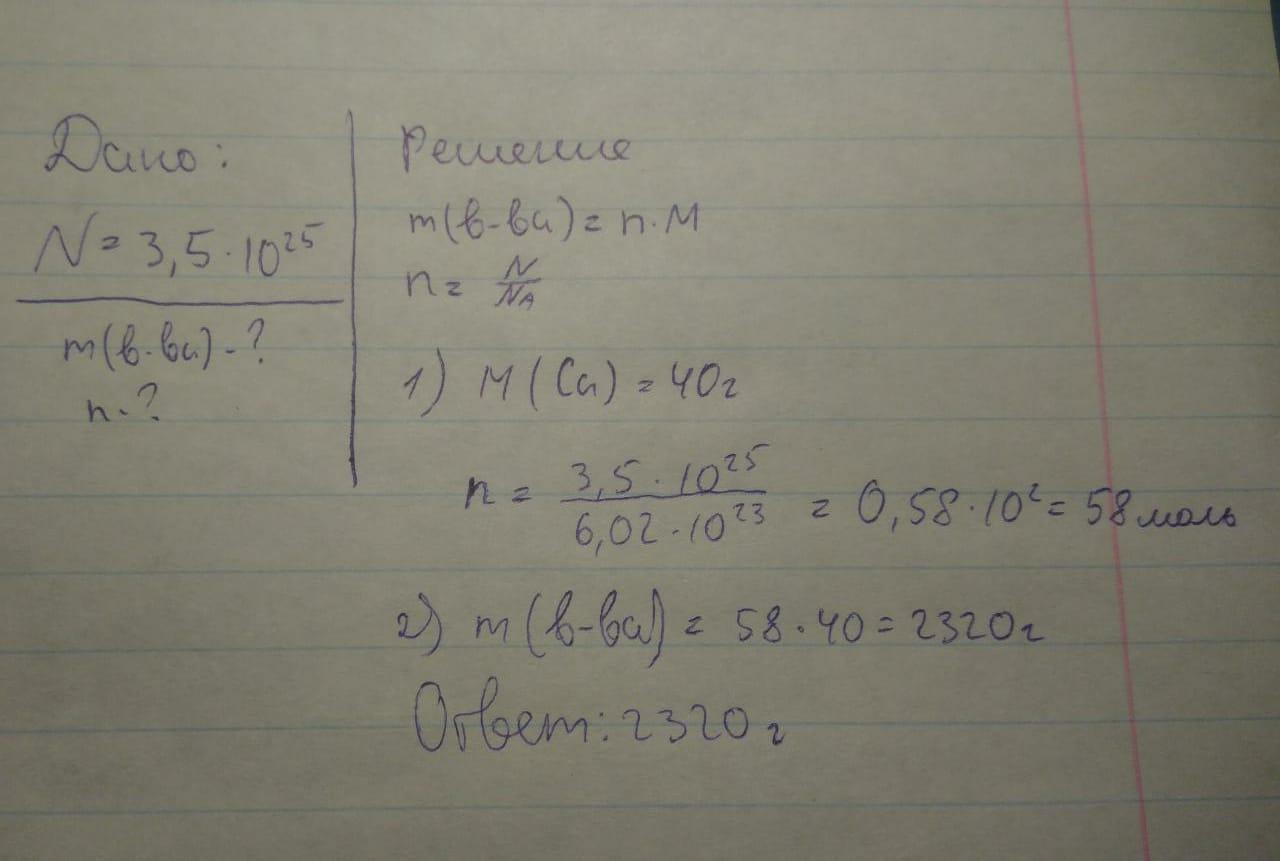 Дано:
N = 3,5 · 10²⁵
m(в-ва) - ?
n - ?
Решение
m(в-ва) = n · M
n = N/NA
1) M (Ca) = 40г
n = 3,5 · 10²⁵ / 6,02 · 10²³ = 0,58 · 10² = 58 моль
2) m (в-ва) = 58 · 40 = 2320г
Ответ: 2320г